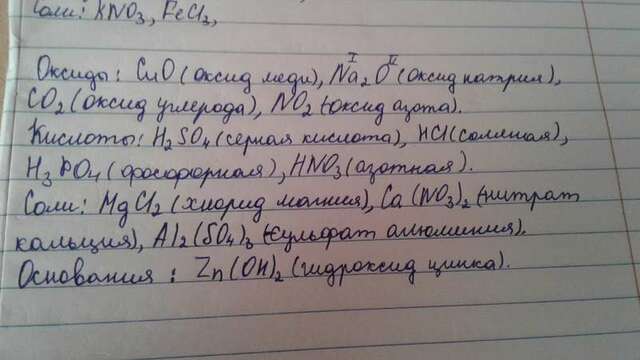 Соли: KNO₃, FeCl₃,
Оксиды: CuO (оксид меди), Na₂O (оксид натрия),
I II
CO₂ (оксид углерода), NO₂ (оксид азота).
Кислоты: H₂SO₄ (серная кислота), HCl (соляная),
H₃PO₄ (фосфорная), HNO₃ (азотная).
Соли: MgCl₂ (хлорид магния), Ca(NO₃)₂ (нитрат
кальция), Al₂(SO₄)₃ (сульфат алюминия).
Основания: Zn(OH)₂ (гидроксид цинка).